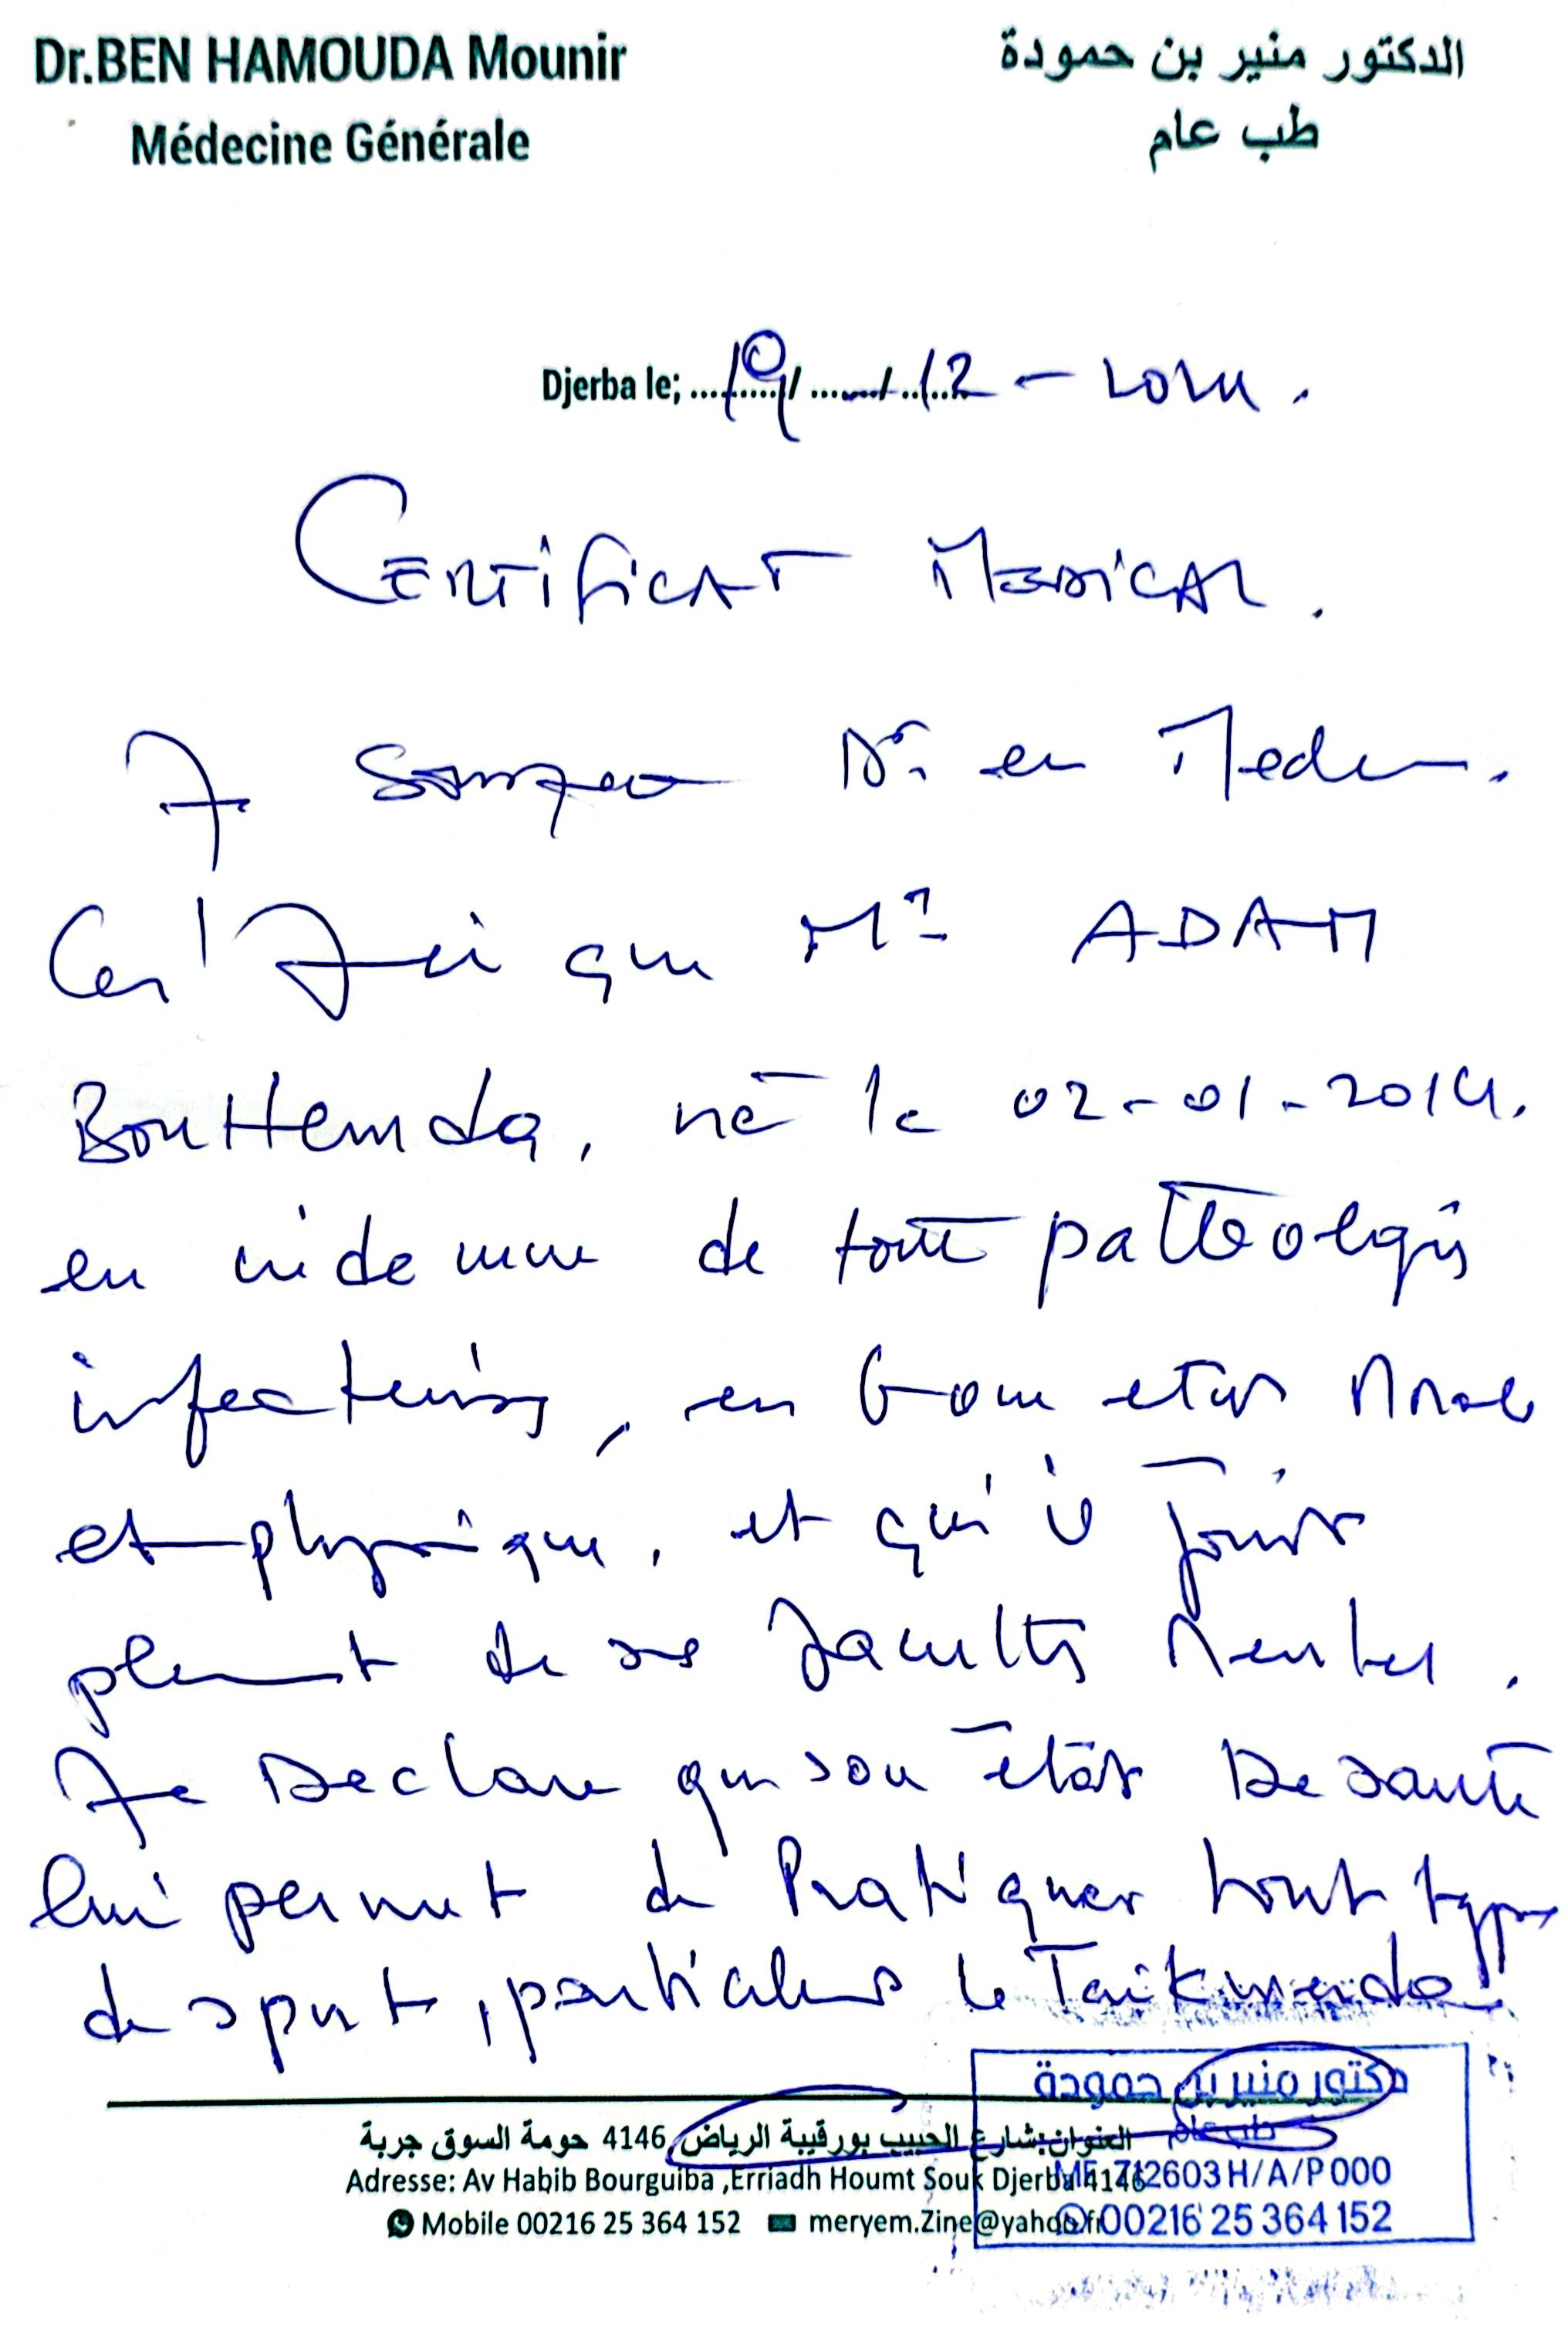 Dr.BEN HAMOUDA Mounir
Médecine Générale
الدكتور منير بن حمودة
طب عام
Djerba le; 19/12 - 2024.
CERTIFICAT MEDICAL.
Je soussigné Dr. en Medecine.
Certifie que Mr ADAM
BouHemda, né le 02-01-2014.
en de toute pathologie
infectieuses, en bonne etat Morale
et physique, et qu'il jouit
pleinement de ses facultés Mentales.
Je Declare que son état De santé
lui permet de Pratiquer tout type
de sport, particulier le Taikwendo
العنوان:شارع الحبيب بورقيبة الرياض 4146 حومة السوق جربة
Adresse: Av Habib Bourguiba ,Erriadh Houmt Souk Djerba 4146
Mobile 00216 25 364 152 meryem.Zine@yahoo.fr
دكتور منير بن حمودة
طب عام
MF 712603H/A/P000
00216 25 364 152